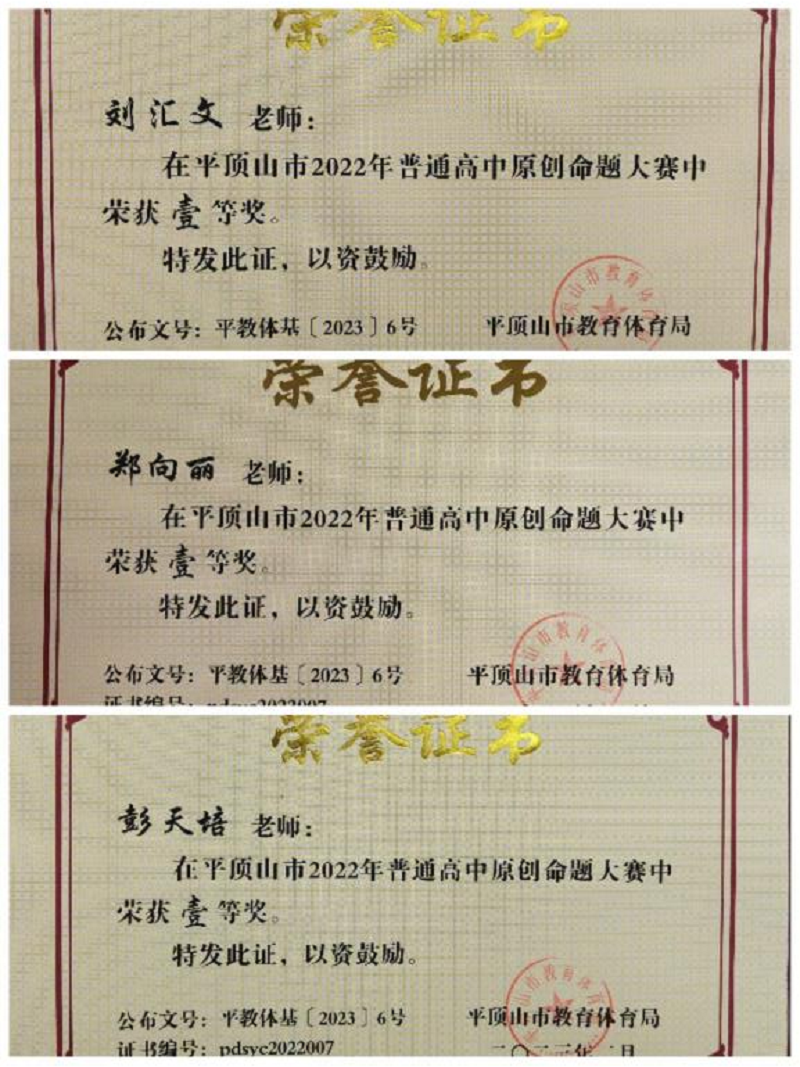 荣誉证书
刘汇文 老师：
在平顶山市2022年普通高中原创命题大赛中
荣获 壹 等奖。
特发此证，以资鼓励。
平顶山市教育体
公布文号：平教体基〔2023〕6号 平顶山市教育体育局
荣誉证书
郑向丽 老师：
在平顶山市2022年普通高中原创命题大赛中
荣获 壹 等奖。
特发此证，以资鼓励。
平顶山市教育体
公布文号：平教体基〔2023〕6号 平顶山市教育体育局
证书编号：pdsyc2022007
荣誉证书
彭天培 老师：
在平顶山市2022年普通高中原创命题大赛中
荣获 壹 等奖。
特发此证，以资鼓励。
平顶山市教育体育
公布文号：平教体基〔2023〕6号 平顶山市教育体育局
证书编号：pdsyc2022007 二〇二三年二月